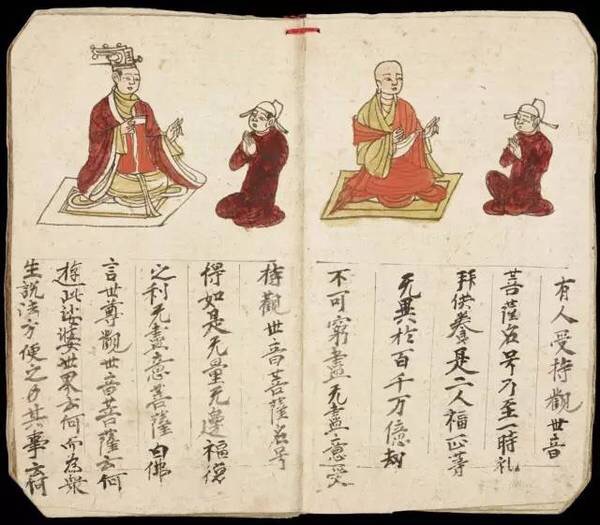 有人受持觀世音
菩薩名号乃至一時礼
拜供養是二人福正等
无異於百千万億劫
不可窮盡无盡意受
持觀世音菩薩名号
得如是无量无邊福德
之利无盡意菩薩白佛
言世尊觀世音菩薩云何
遊此娑婆世界云何而為衆
生說法方便之力其事云何